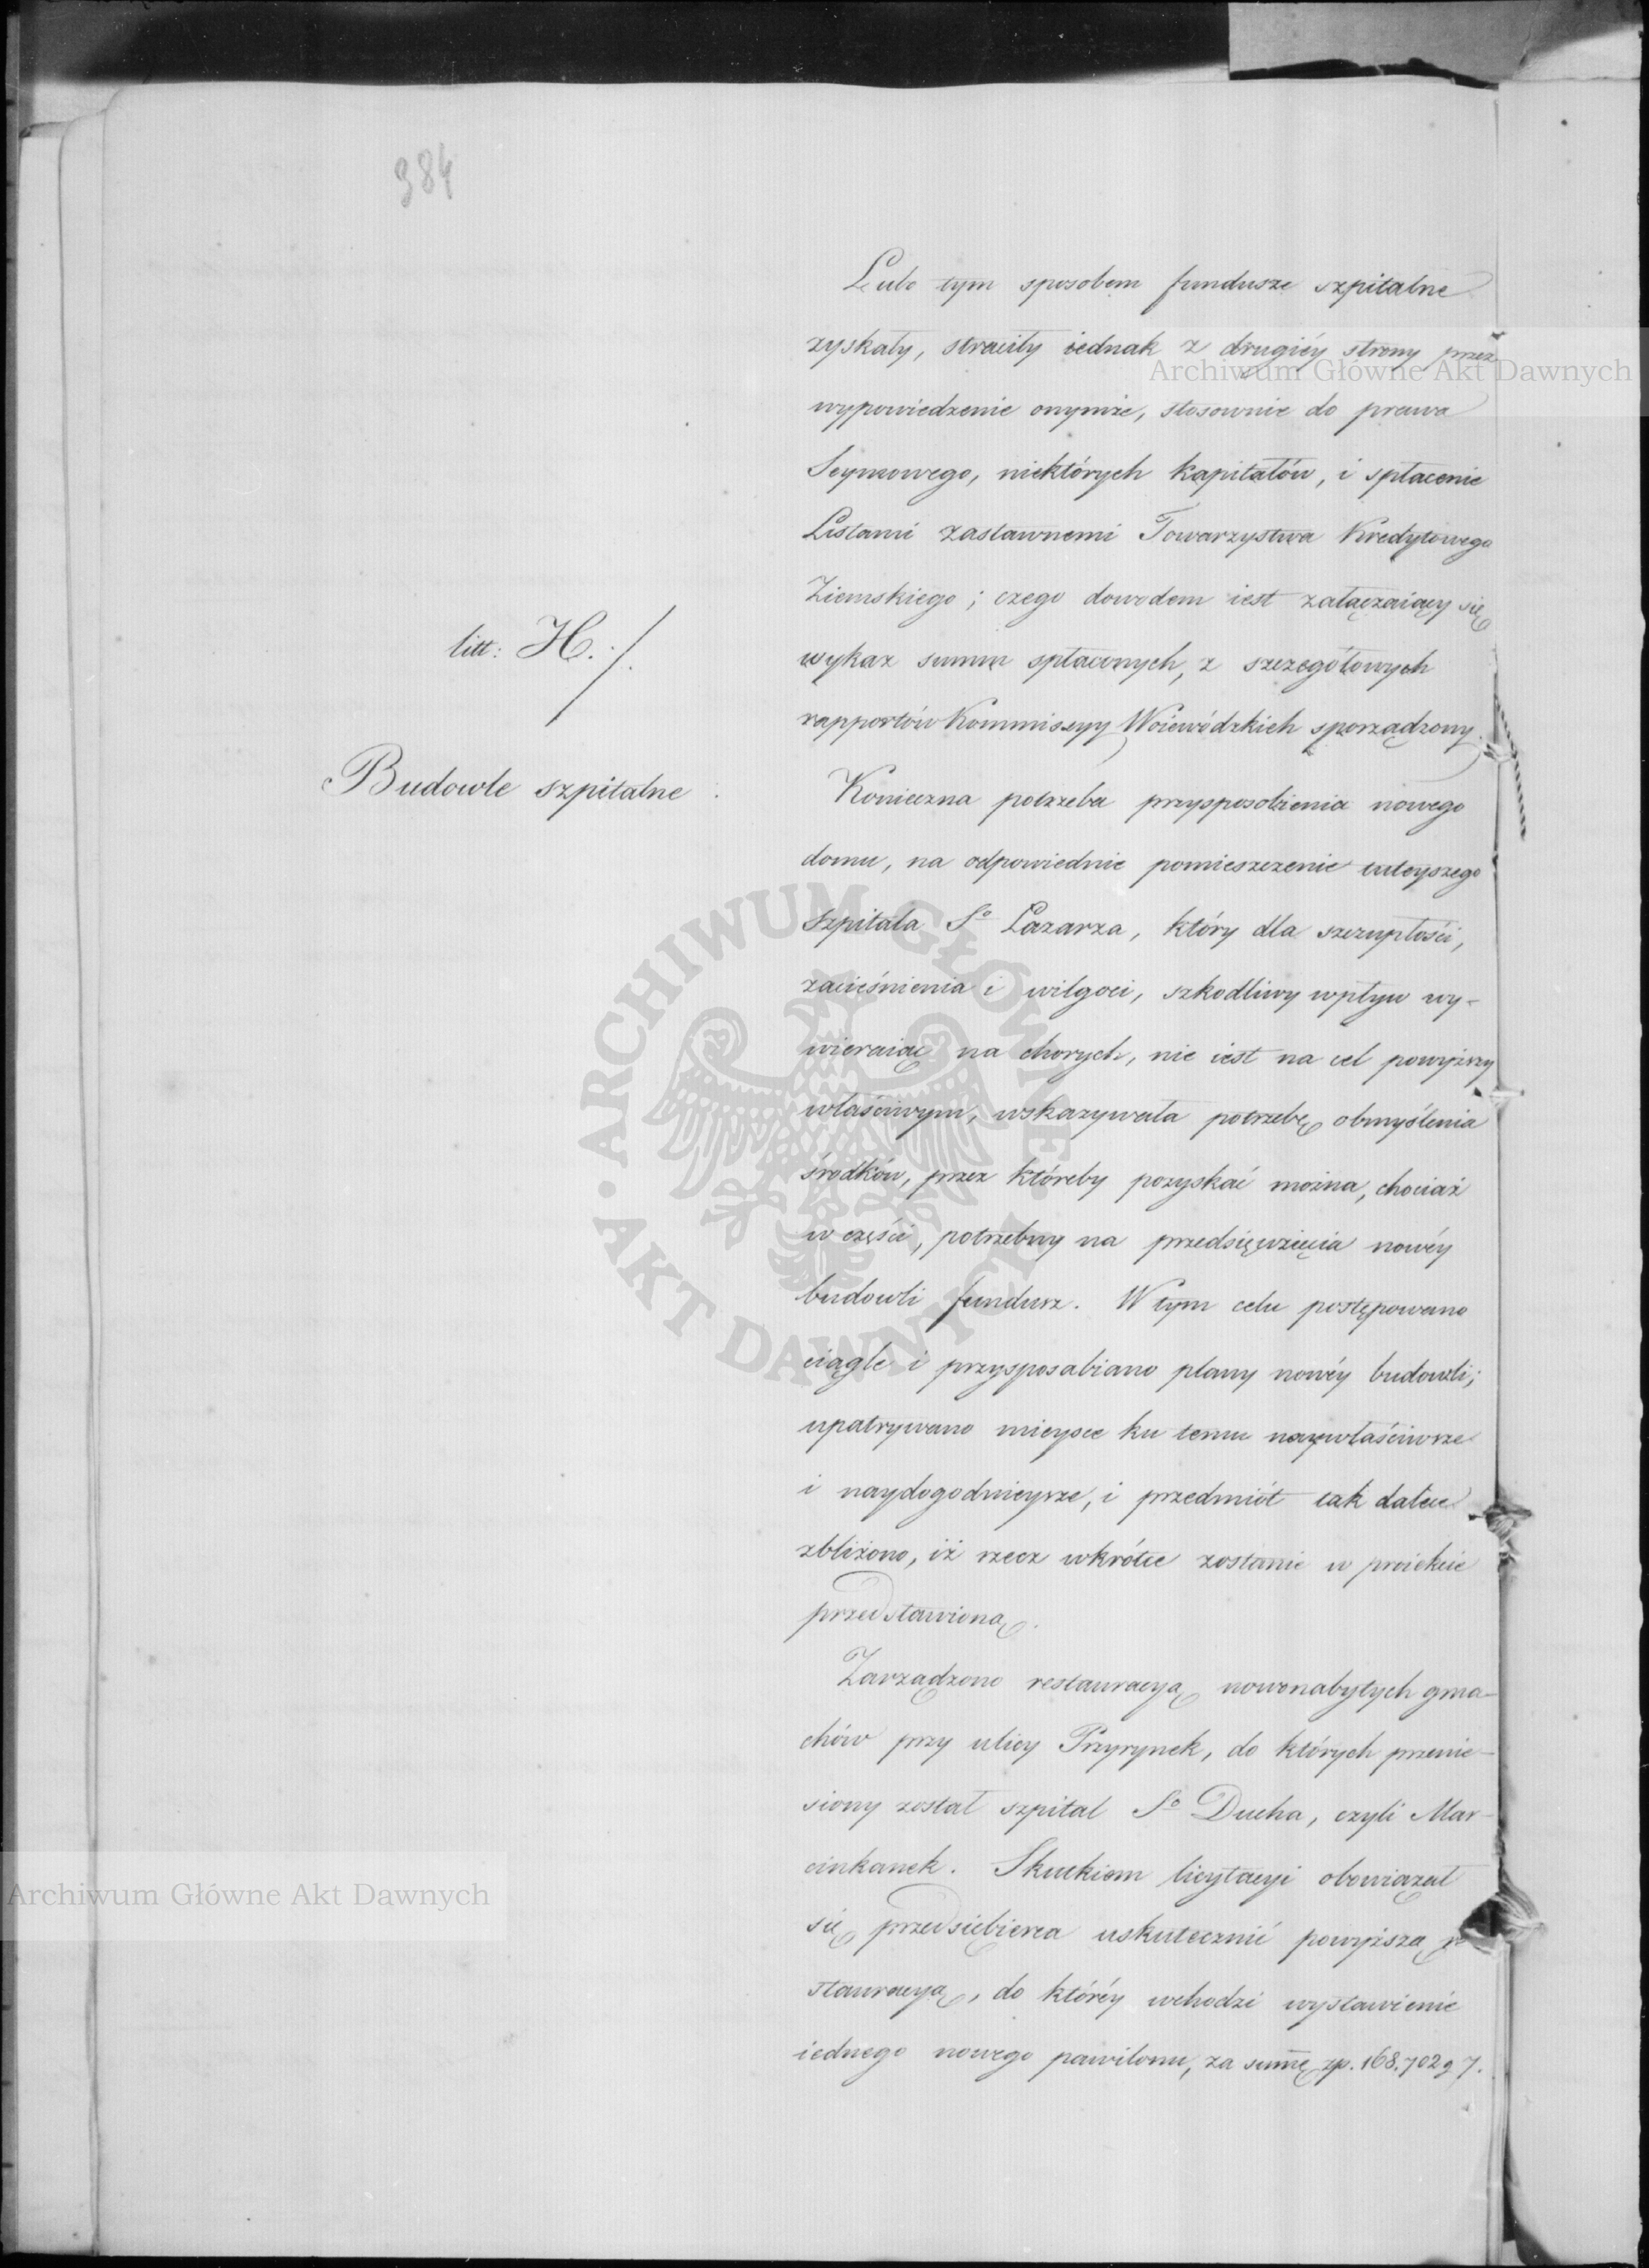 384
Lubo tym sposobem fundusze szpitalne
zyskały, straciły iednak z drugiéy strony przez
wypowiedzenie onymże, stosownie do prawa
Seymowego, niektórych kapitałów, i spłacenie
Listami zastawnemi Towarzystwa Kredytowego
Ziemskiego; czego dowodem iest załączaiący się
litt: H. ./.
wykaz summ spłaconych, z szczegółowych
rapportów Kommissyy Woiewódzkich sporządzony.
Budowle szpitalne
Konieczna potrzeba przysposobienia nowego
domu, na odpowiednie pomieszczenie tuteyszego
Szpitala Sº Łazarza, który dla szczupłości,
zacieśnienia i wilgoci, szkodliwy wpływ wy-
wieraiąc na chorych, nie iest na cel powyższy
właściwym, wskazywała potrzebę obmyślenia
środków, przez któreby pozyskać można, chociaż
w części, potrzebny na przedsięwzięcia nowéy
budowli fundusz. W tym celu postępowano
ciągle i przysposabiano plany nowéy budowli;
upatrywano mieysce ku temu naywłaściwsze
i naydogodnieysze, i przedmiót tak dalece
zbliżono, iż rzecz wkrótce zostanie w proiekcie
przedstawioną.
Zarządzono restauracyą nowonabytych gma-
chów przy ulicy Przyrynek, do których przenie-
siony został szpital Sº Ducha, czyli Mar-
cinkanek. Skutkiem licytacyi obowiązał
się przedsiębierca uskutecznić powyższą re
stauracyą, do któréy wchodzi wystawienie
iednego nowego pawilonu, za sum̄ę zp. 168.702 g 7.
Archiwum Główne Akt Dawnych
ARCHIWUM GŁÓWNE · AKT DAWNYCH ·
Archiwum Główne Akt Dawnych